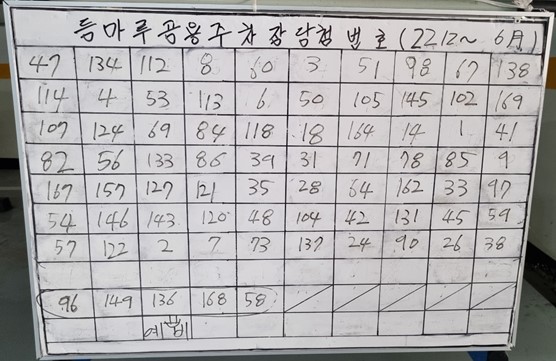 등마루공용주차장당첨번호(22.12~6月)
47 134 112 8 60 3 51 98 67 138
114 4 53 113 6 50 105 145 102 169
107 124 69 84 118 18 164 14 1 41
82 56 133 86 39 31 71 78 85 9
167 157 127 121 35 28 64 162 33 97
54 146 143 120 48 104 42 131 45 59
57 122 2 7 73 137 24 90 26 38
96 149 136 168 58
예비